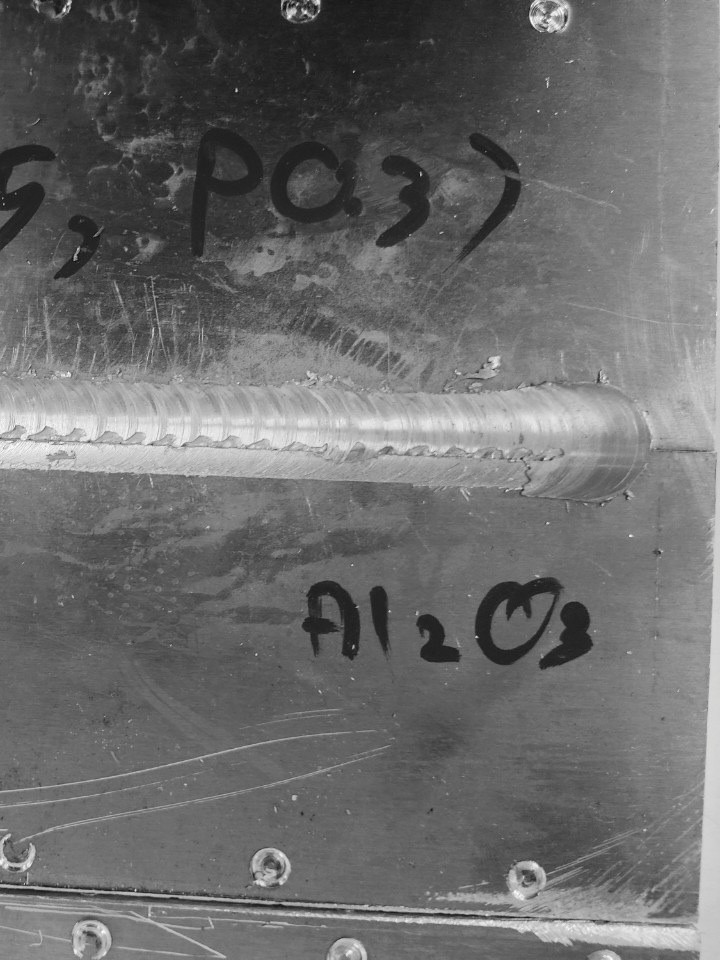 5, P0.3)
Al2O3